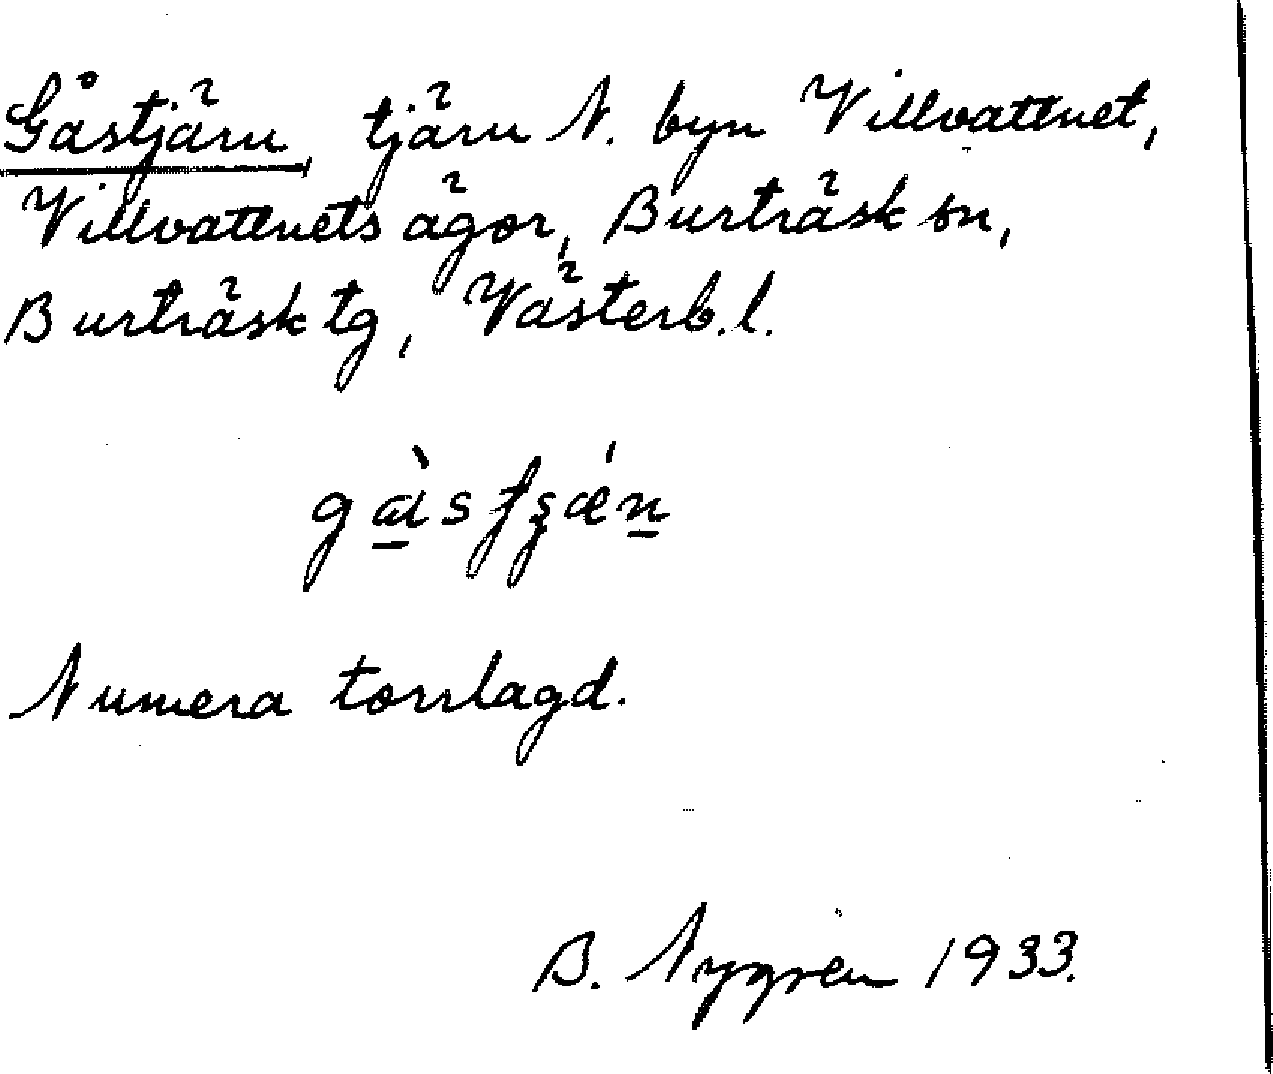 Gåstjärn, tjärn N. byn Villvattnet,
Villvattnets ägor, Burträsk sn,
Burträsk tg, Västerb.l.
Numera torrlagd.
B. Nygren 1933.